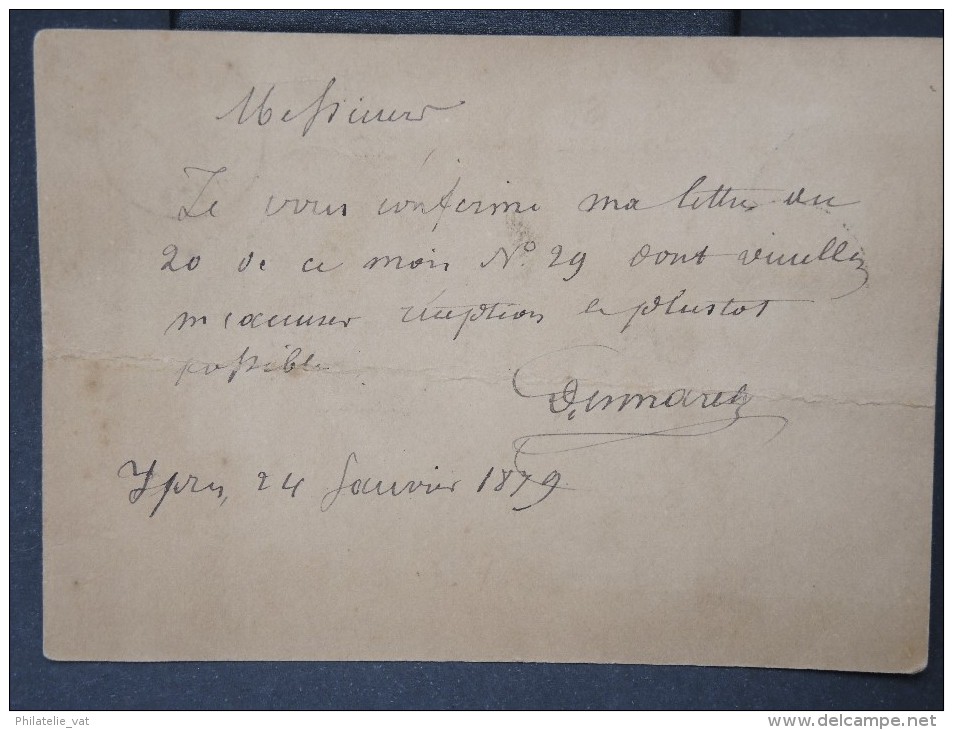 Messieurs
Je vous confirme ma lettre du
20 de ce mois N° 29 dont veuillez
m'accuser réception le plustot
possible
Desmarets
Ypres, 24 Janvier 1879
Philatelie_vat
www.delcampe.net